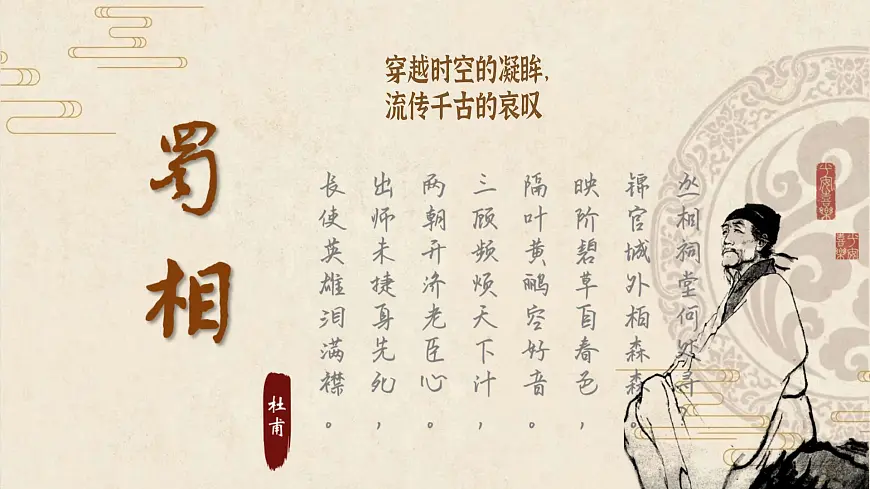 穿越时空的凝眸，
流传千古的哀叹
蜀相
杜甫
丞相祠堂何处寻
锦官城外柏森森。
映阶碧草自春色，
隔叶黄鹂空好音。
三顾频烦天下计，
两朝开济老臣心。
出师未捷身先死，
长使英雄泪满襟。
平安喜樂
平安喜樂